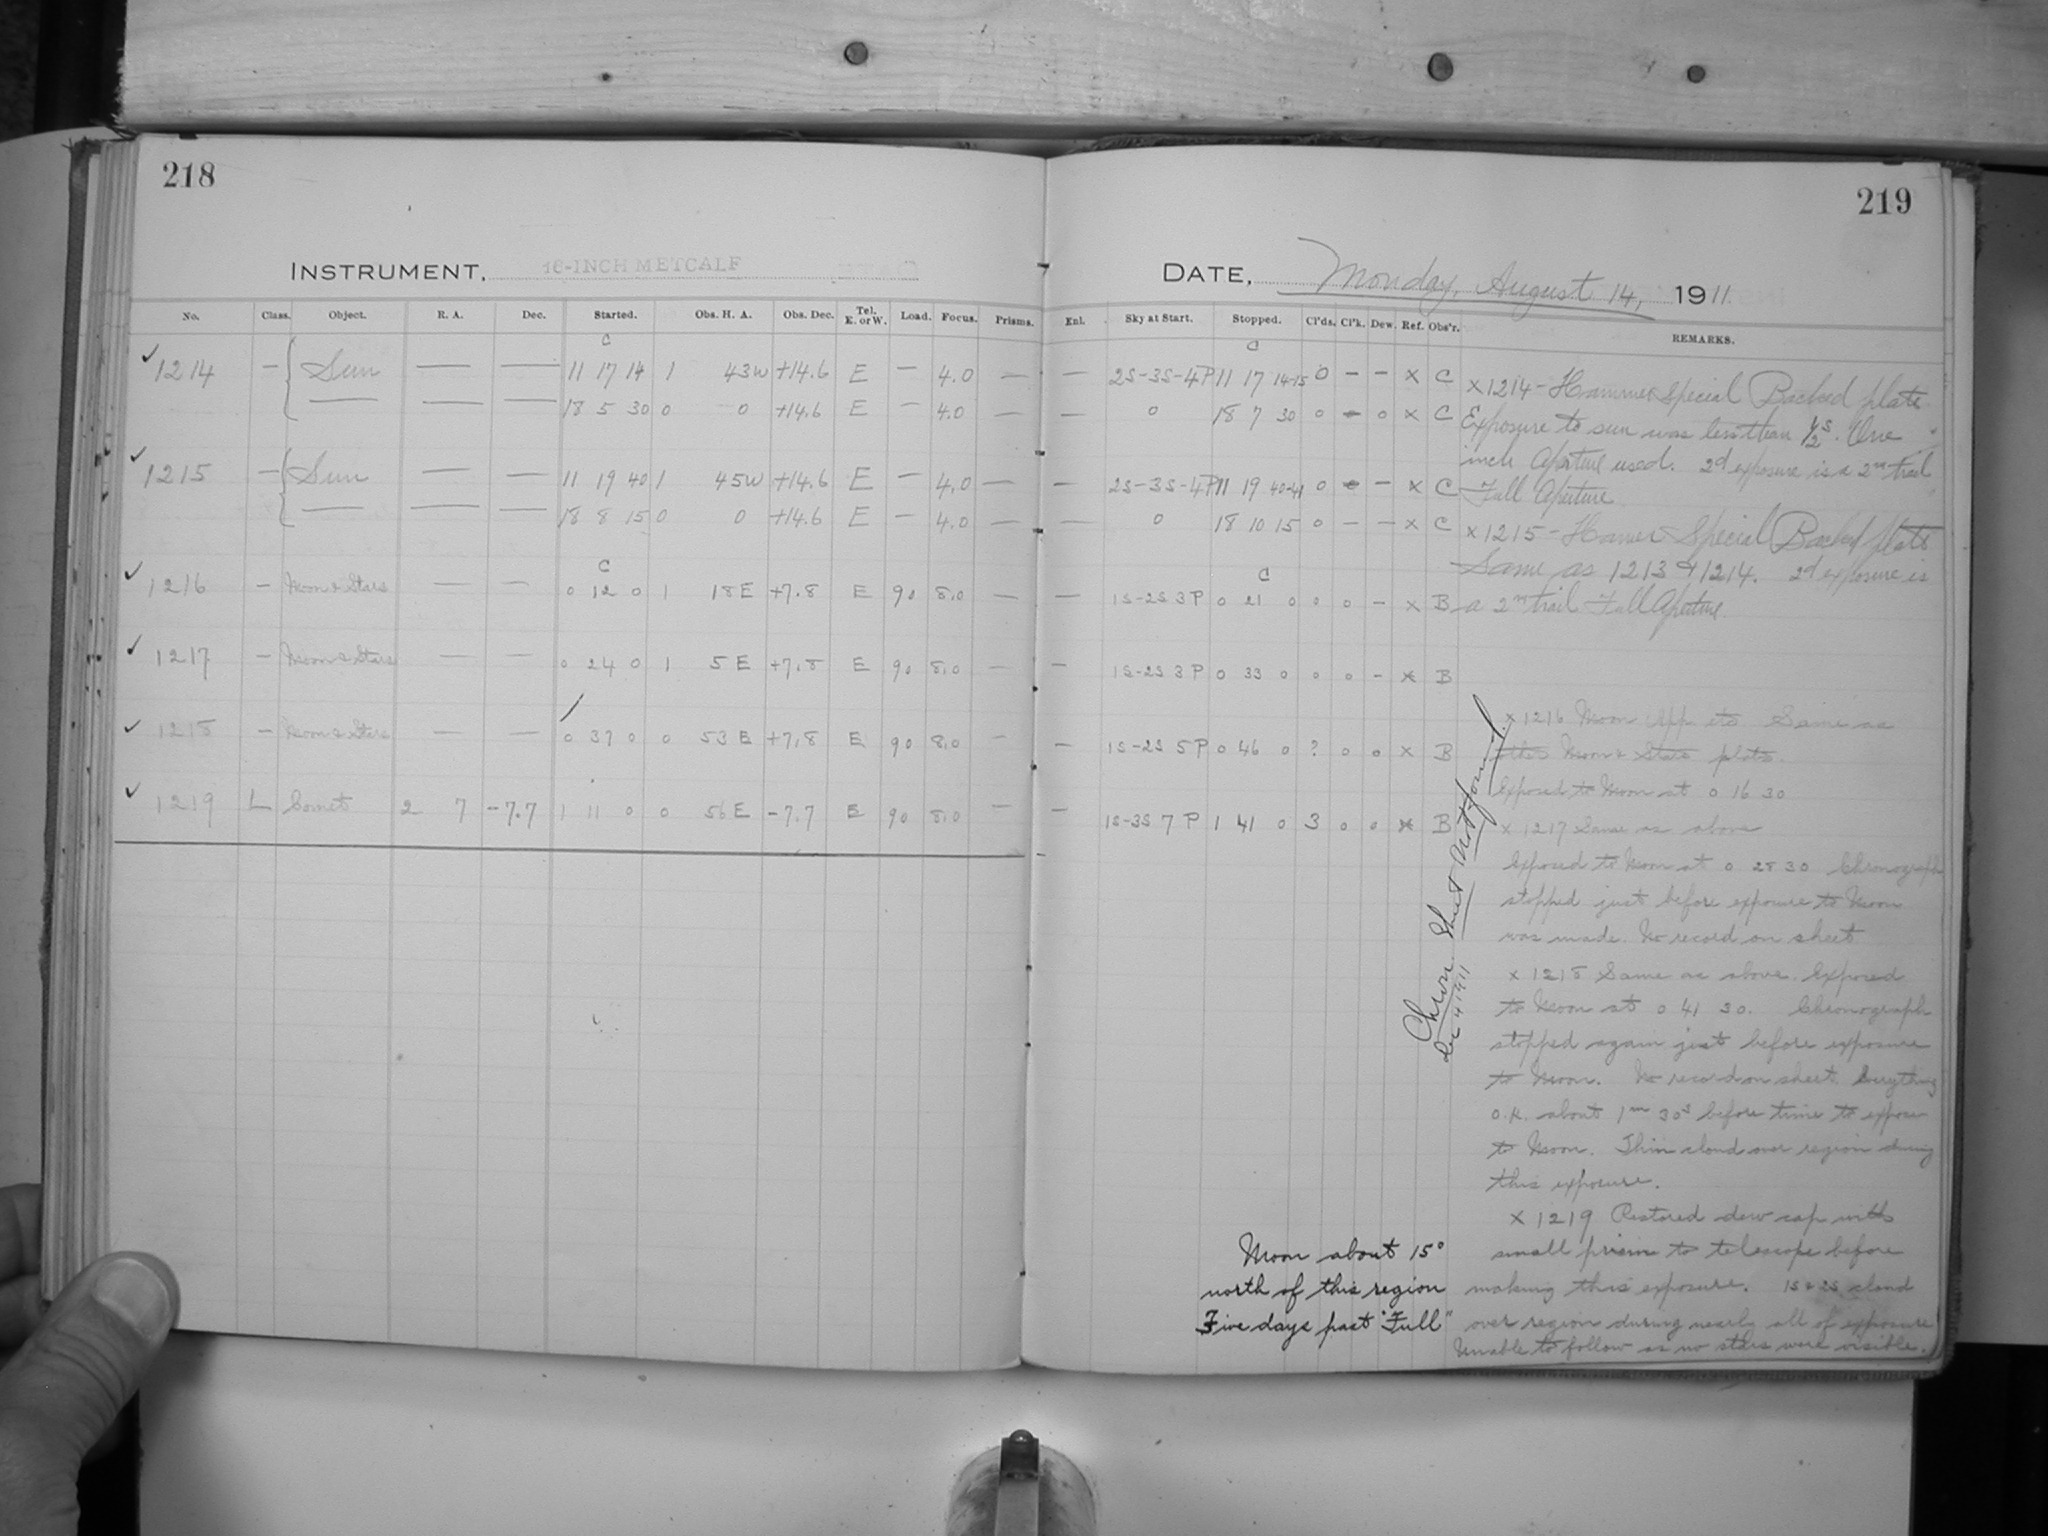 218
INSTRUMENT, 16-INCH METCALF
No. Class. Object. R. A. Dec. Started. Obs. H. A. Obs. Dec. Tel. E. or W. Load. Focus. Prisms.
C
✓ 1214 — Sun — — 11 17 14 1 43 W +14.6 E — 4.0 —
— — — 18 5 30 0 0 +14.6 E — 4.0 —
✓ 1215 — Sun — — 11 19 40 1 45 W +14.6 E — 4.0 —
— — — 18 8 15 0 0 +14.6 E — 4.0 —
C
✓ 1216 — Moon & Stars — — 0 12 0 1 18 E +7.8 E 90 8.0 —
✓ 1217 — Moon & Stars — — 0 24 0 1 5 E +7.8 E 90 8.0 —
✓ 1218 — Moon & Stars — — 0 37 0 0 53 E +7.8 E 90 8.0 —
✓ 1219 L Comet 2 7 -7.7 1 11 0 0 56 E -7.7 E 90 8.0 —
219
DATE, Monday, August 14, 1911
Enl. Sky at Start. Stopped. Cl'ds. Cl'k. Dew. Ref. Obs'r. REMARKS.
C
— 2S-3S-4P 11 17 14-15 0 — — x C
— 0 18 7 30 0 — 0 x C
— 2S-3S-4P 11 19 40-41 0 — — x C
— 0 18 10 15 0 — — x C
C
— 1S-2S 3P 0 21 0 0 0 — x B
— 1S-2S 3P 0 33 0 0 0 — x B
— 1S-2S 5P 0 46 0 ? 0 0 x B
— 1S-3S 7P 1 41 0 3 0 0 x B
x 1214 - Hammer Special Backed plate
Exposure to sun was less than 1/2 s. One
inch Aperture used. 2d exposure is a 2m trail
Full Aperture
x 1215 - Hamer Special Backed plate
Same as 1213 & 1214. 2d exposure is
a 2m trail Full Aperture.
x 1216 Moon App etc Same as
other Moon & Stars plats.
Exposed to Moon at 0 16 30
x 1217 Same as above
Exposed to Moon at 0 28 30 Chronograph
stopped just before exposure to Moon
was made. No record on sheet
x 1218 Same as above. Exposed
to Moon at 0 41 30. Chronograph
stopped again just before exposure
to Moon. No record on sheet. Everything
O.K. about 1m 30s before time to expose
to Moon. Thin cloud over region during
this exposure.
x 1219 Restored dew cap with
small prism to telescope before
making this exposure. 1S & 2S cloud
over region during nearly all of exposure
Unable to follow as no stars were visible.
Chron. Sheet Not found
Dec 4 1911
Moon about 15°
north of this region
Five days past "Full"